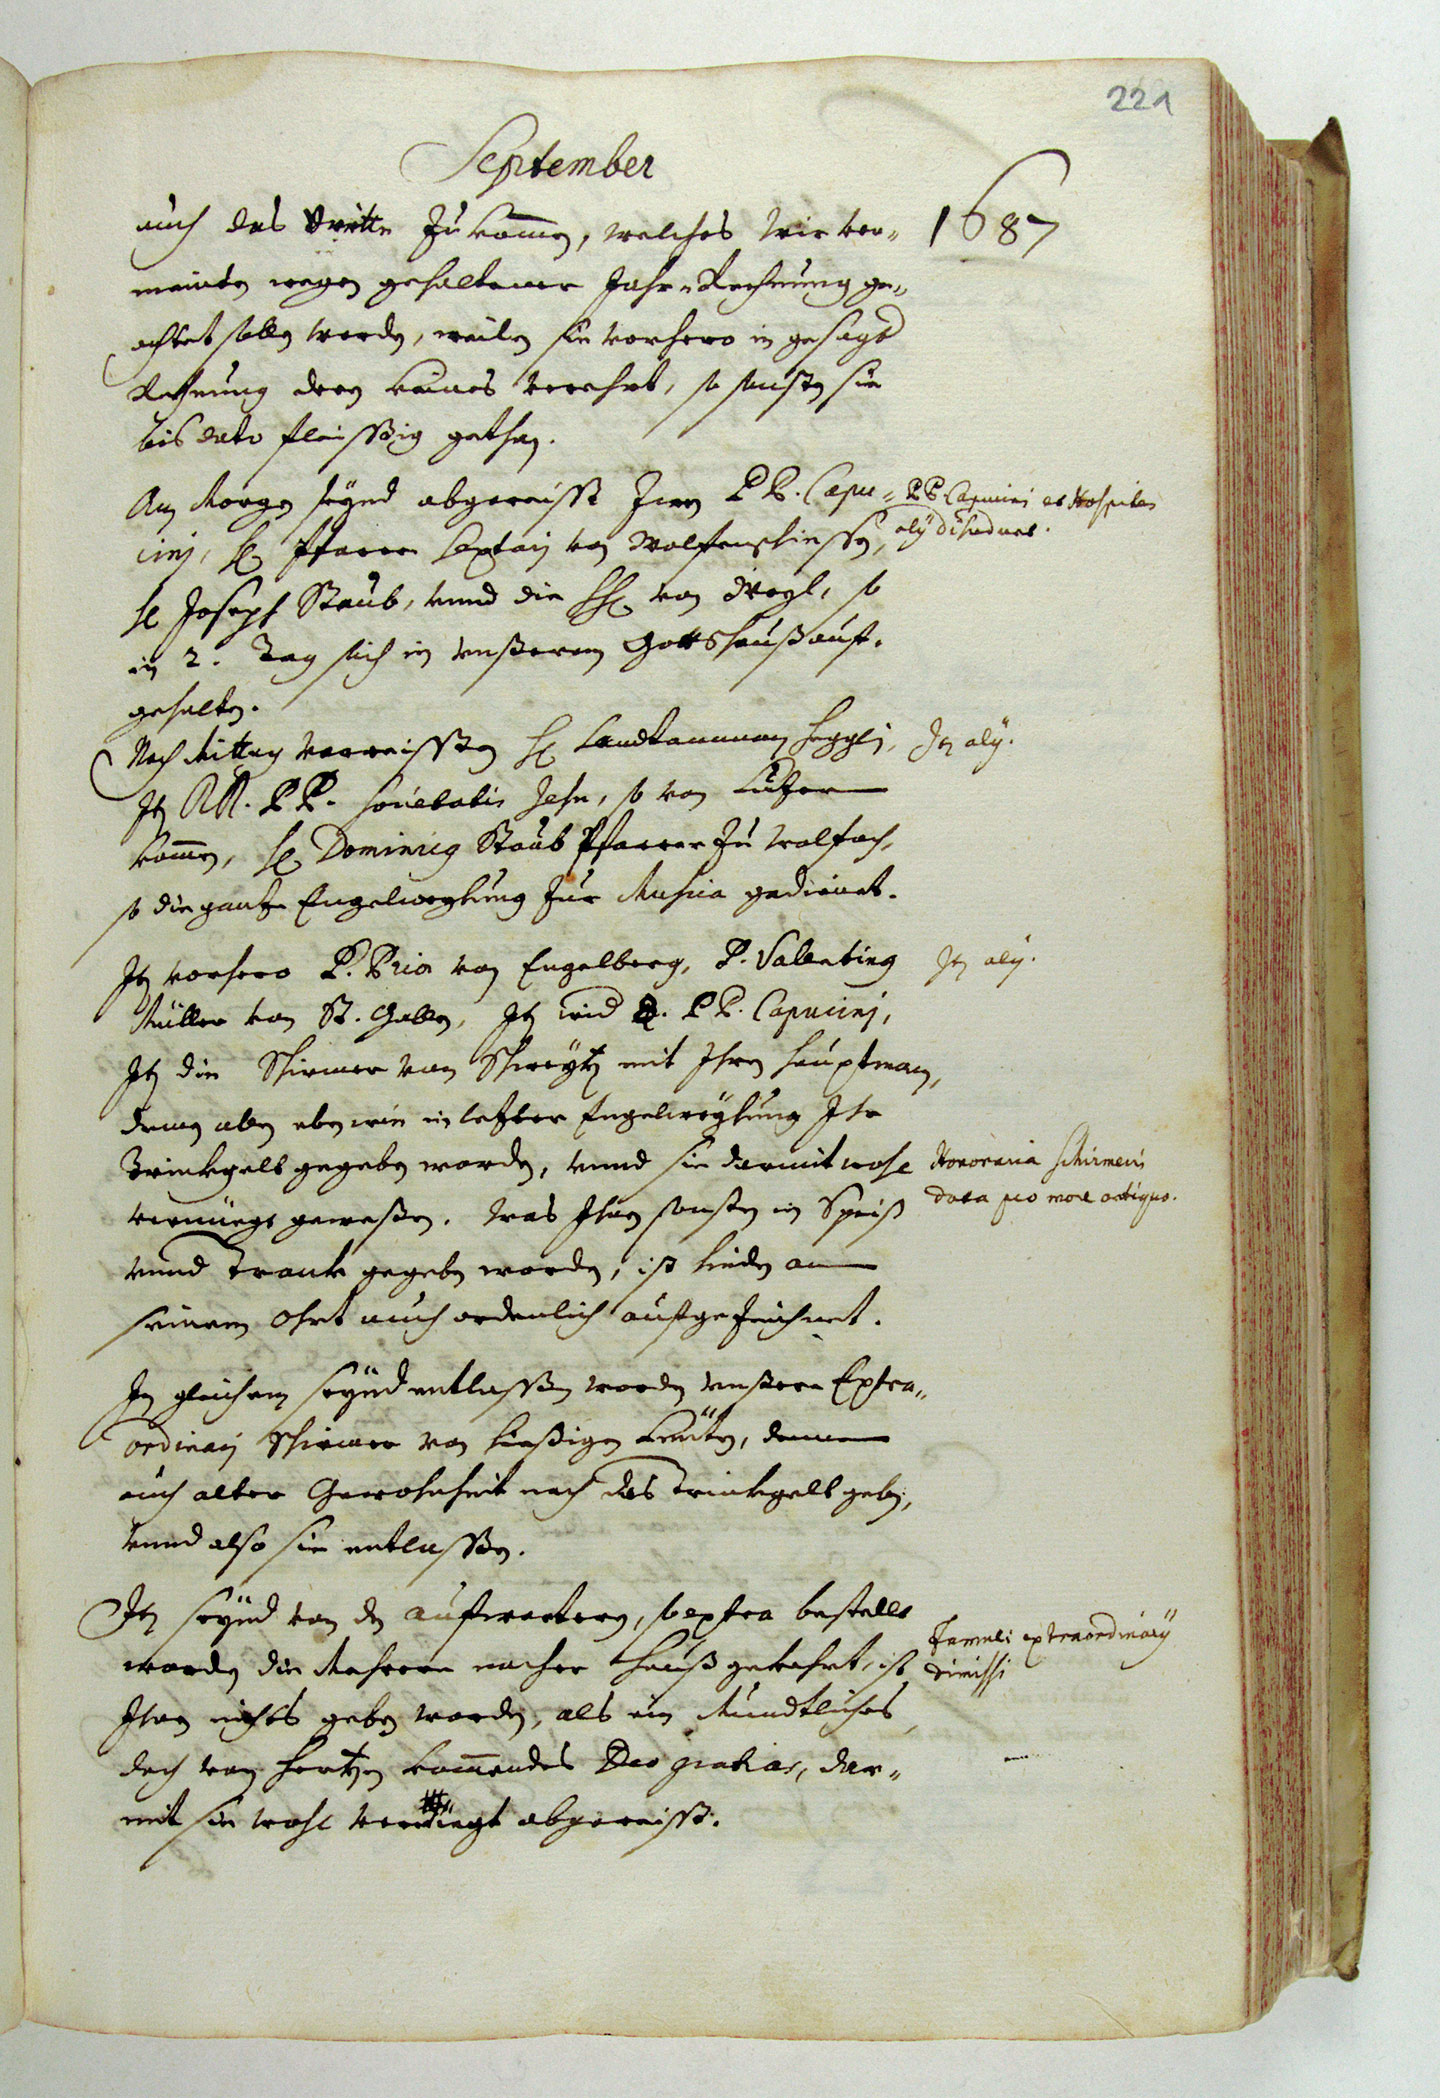 221
September
1687
auch das dritte zu kommen, welches wir ver-
meinten wegen gehaltener Jahr-Rechnung ge-
achtet solle werden, weilen sie vorhero in gesagt
Rechnung deren keines verehrt, so sonsten sie
bis dato fleissig gethan.
Am Morgen seynd abgereisst zwen PP. Capu-
cini, H. Pfarrer von Wolffenschiessen,
H. Joseph Staub, unnd die HH. von Wegl, so
in 2. Tag sich in unserem Gottshauss auff-
gehalten.
PP Capucini et Hospites
alij discedunt.
Nach Mittag verreissten H. Landtamman Heggli,
It RR. PP. Societatis Jesu, so von Lutzern
kommen, H. Dominicq Staub Pfarrer zu Walfach,
so die gantze Engelweyhung zur Musica gedienet.
It alij.
It vorhero P. Prior von Engelberg, P. Valenting
Müller von St. Gallen, It PP. Capucini,
It die Schirmer von Schweytz mit Ihren Hauptman,
denen allen eben wie in letster Engelweyhung Ihr
Trinkgelt gegeben worden, unnd sie darmit wohl
vernüegt gewessen. Was Ihnen sonsten in Speiss
unnd Tranck gegeben worden, ist hinden an
seinem Ohrt auch ordenlich auffgezeichnet.
It alij.
Honoraria Schirmeris
data pro more antiquo.
In gleichem seynd entlassen worden unsere Extra-
ordinarij Schirmer von hiesigen Leüten, denen
auch alter Gewohnheit nach das Trinkgelt geben,
unnd also sie entlassen.
It seynd von den auffwartern, so extra bestellt
worden die Mehrere nacher Hauss gekehrt, ist
Ihnen nichts geben worden, als ein Mundtliches,
doch von Hertzen kommendes Deo gratias, dar-
mit sie wohl vernüegt abgereisst.
Famuli extraordinarij
dimissi